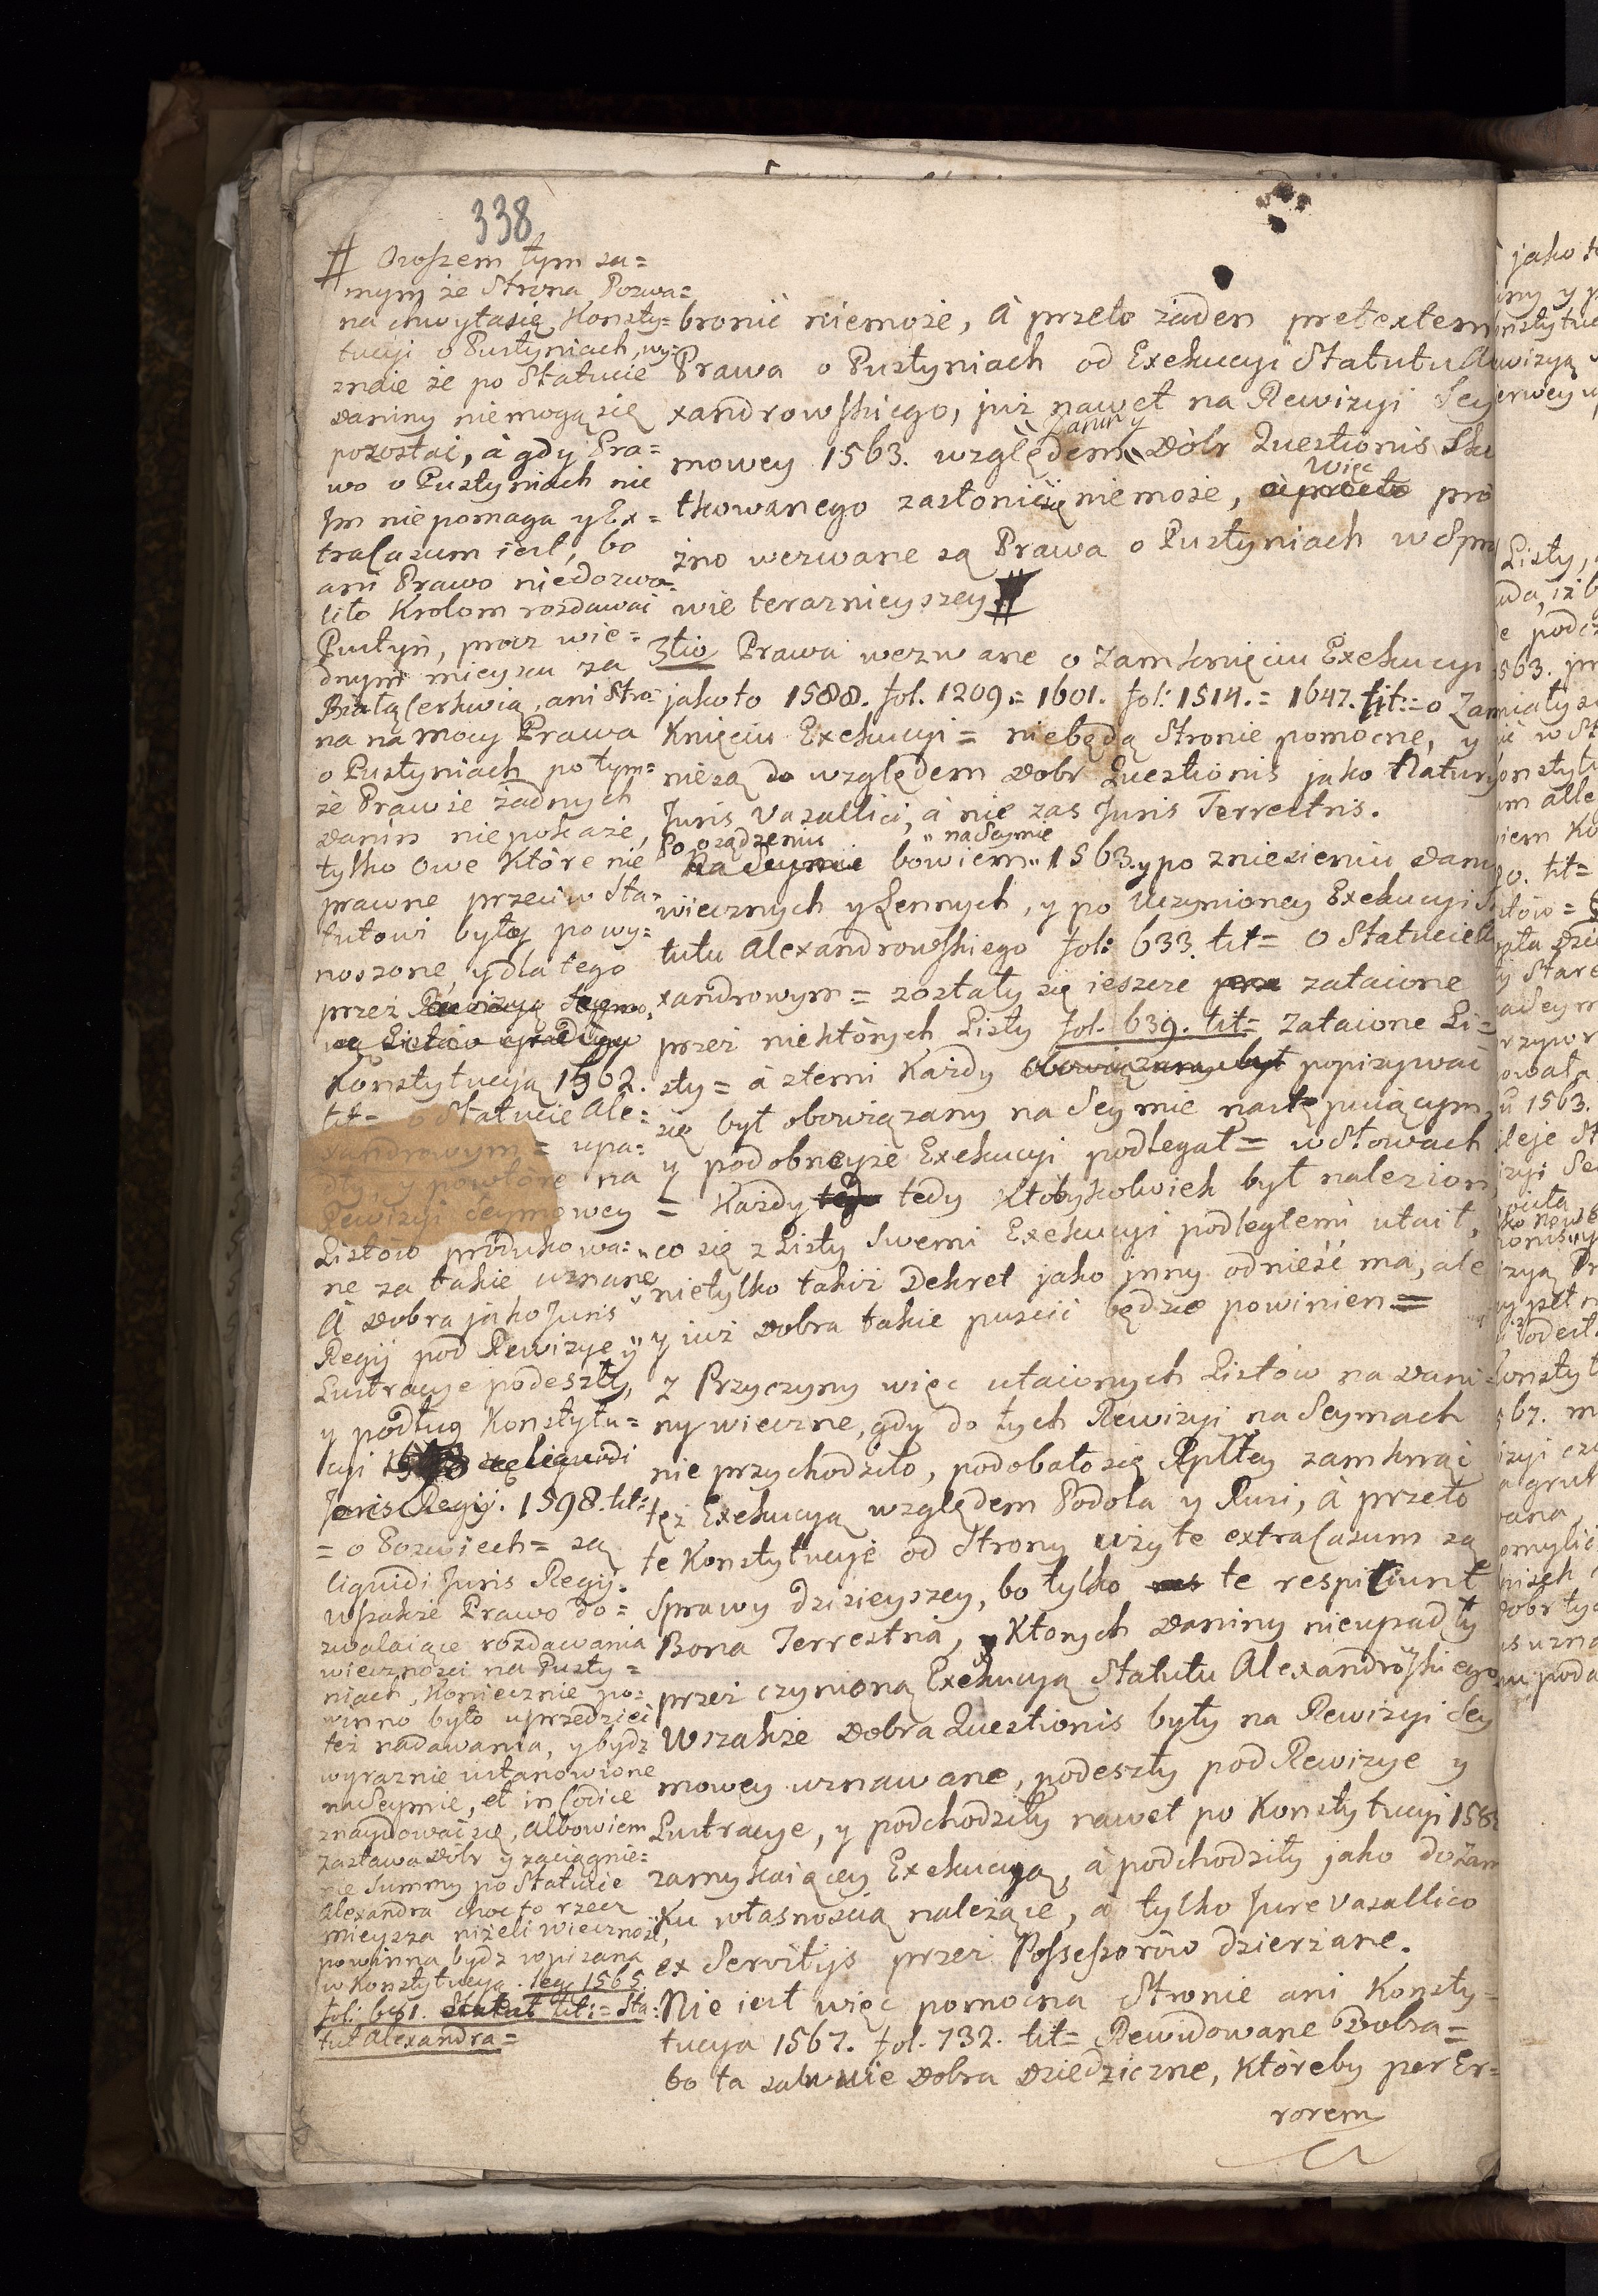 338
# Owszem tym sa=
mym że Strona Pozwa=
na chwytasię Konsty=
tucyi o Pustyniach, wy=
znaie że po Statucie
daniny niemogą się
pozostać, à gdy Pra=
wo o Pustyniach nie
Jm niepomaga y Ex=
traCasum iest, bo
ani Prawo niedozwo=
liło Krolom rozdawać
Pustyń, procz wie=
dnym mieyscu za
BiałąCerkwią, ani Stro=
na na mocy Prawa
o Pustyniach po tym=
że Prawie żadnych
danin niepokaże,
tylko owe Które nie
prawne przeciw Sta=
tutowi były powy=
noszone, y dla tego
przez Rewizyą Seymo,
wą Listów
Konstytucyją 1562.
tit= o Statucie Ale=
xandrowym = upa=
dły, y powtóre na
Rewizyi Seymowey
Listów produkowa=
ne za takie uznane
A dobra jako Juris
Regij pod Rewizye y
Lustracye podeszły,
y podług Konstytu=
cyi są liquidi
Juris Regij. 1598. tit:
= o Pozwiech = są
liquidi Juris Regij.
Wszakże Prawo do=
zwalaiące rozdawania
wieczności na Pusty=
niach, Koniecznie po=
winno było uprzedzić
też nadawania, y bydz
wyraznie ustanowione
na Seymie, et in Codice
znaydować się, albowiem
Zastawa dobr y zaciągnie=
nie Summy po Statucie
Alexandra choc to rzecz
mieysza niżeli wieczność,
powinna bydz wpisana
w Konstytucyą. leg. 1565.
fol: 681. Statut tit: = Sta:
tut Alexandra =
bronić niemoże, A przeto żaden pretextem
Prawa o Pustyniach od Exekucyi Statutu A
xandrowskiego, już nawet na Rewizyi Sey
Daniny
mowey 1563. względem dóbr Questionis Sku
więc
tkowanego zasłonić się niemoże, a przeto pró
żno wezwane są Prawa o Pustyniach w Spra
wie terazniey szey #
3tio Prawa wezwane o Zamknięciu Exekucyi
jako to 1588. fol. 1209. = 1601. fol: 1514. = 1647. tit: = o Zam
Knięciu Exekucyi = niebędą Stronie pomocne, y
niesą do względem dobr Questionis jako Natury
Juris Vasallici, à nie zas Juris Terrestris.
Po osądzeniu „ na Seymie
Na Seymie bowiem „ 1563. y po zniesieniu dan
wiecznych y Lennych, y po Uczynioney Exekucyi S
tutu Alexandrowskiego fol: 633. tit = O Statucie
xandrowym = zostały się ieszcze zataione
przez niektórych Listy fol. 639. tit = Zataione Li=
sty = à ztemi Każdy obowiązany był popisywać
się był obowiązany na Seymie następuiącym,
y podobneyże Exekucyi podlegał = w Słowach
= Każdy tedy tedy Ktobykolwiek był nalezion,
„ co się z Listy Swemi Exekucyi podległemi utaił,
„ nietylko takiż Dekret jako inny odnieść ma, ale
„ y iuż dobra takie puscić będzie powinien =
Z Przyczyny więc utaionych Listów na dani=
ny wieczne, gdy do tych Rewizyi na Seymach
nie przychodziło, podobało się Rpltey zamknąć
też Exekucyą względem Podola y Rusi, à przeto
te Konstytucyie od Strony użyte extraCasum są
Sprawy dzisieyszey, bo tylko te respiciunt
Bona Terrestria, Ktorych daniny nieupadły
przez czynioną Exekucyą Statutu Alexandrowskiego
Wszakże dobra Questionis były na Rewizyi Sey
mowey uznawane, podeszły pod Rewizye y
Lustracye, y podchodziły nawet po Konstytucyi 158
zamykaiącey Exekucyą, à podchodziły jako do Zam
Ku własnością należące, à tylko Jure Vasallico
ex Servitijs przez Possessorów dzierżane.
Nie iest więc pomocna Stronie ani Konsty=
tucya 1567. fol. 732. tit = Rewidowane Dobra =
bo ta salwuie dobra dziedziczne, Któreby per Er=
rorem